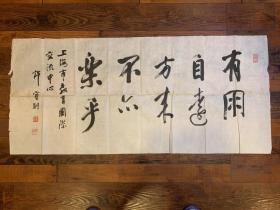 有朋
自遠
方来
不亦
樂乎
上海市教育國際
交流中心